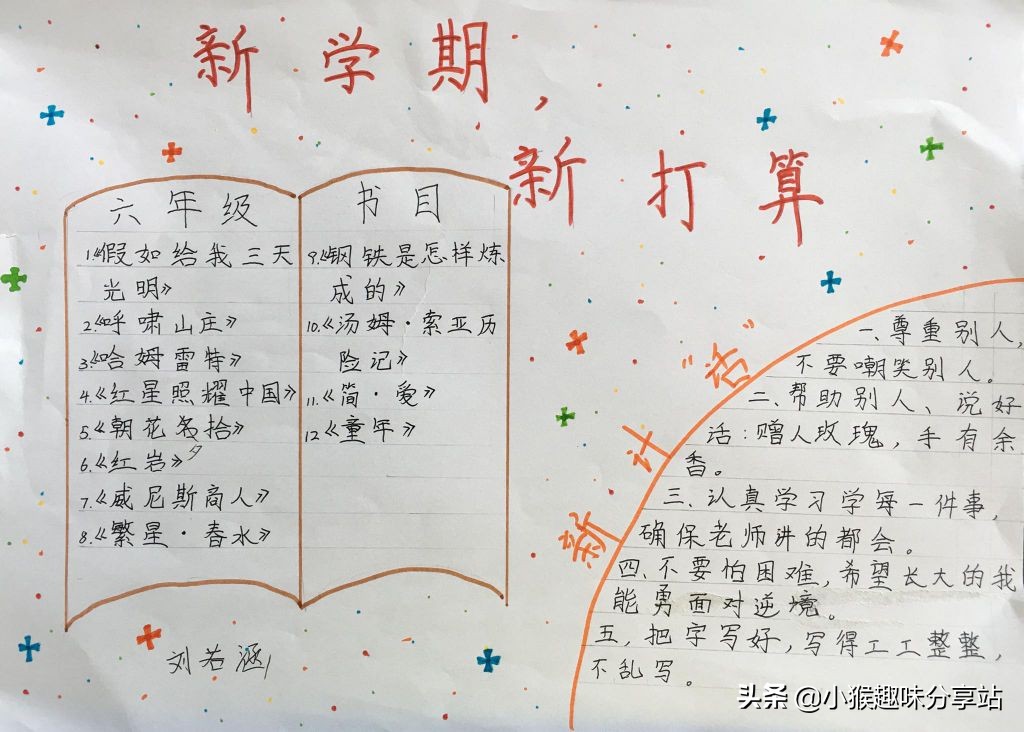 新学期，
新打算
六年级
1.《假如给我三天
光明》
2.《呼啸山庄》
3.《哈姆雷特》
4.《红星照耀中国》
5.《朝花夕拾》
6.《红岩》
7.《威尼斯商人》
8.《繁星·春水》
书目
9.《钢铁是怎样炼
成的》
10.《汤姆·索亚历
险记》
11.《简·爱》
12《童年》
刘若涵
新计“话”
一、尊重别人，
不要嘲笑别人。
二、帮助别人、说好
话：赠人玫瑰，手有余
香。
三、认真学习学每一件事，
确保老师讲的都会。
四、不要怕困难，希望长大的我
能勇面对逆境。
五，把字写好，写得工工整整，
不乱写。
头条 @小猴趣味分享站